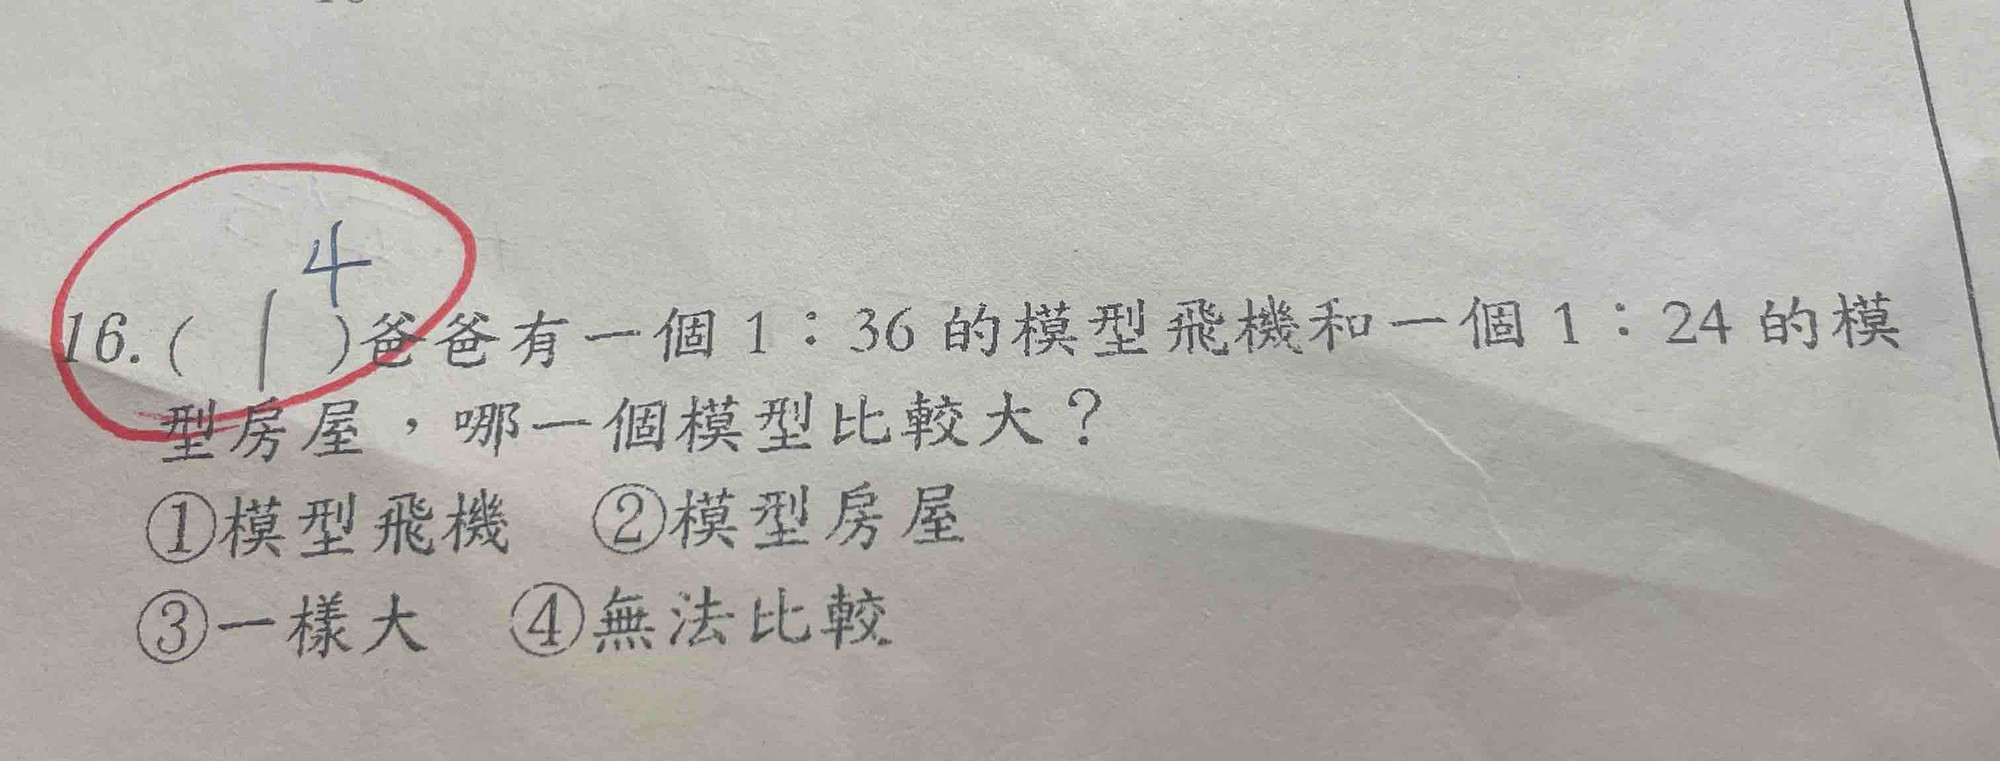 4
16.( 1 )爸爸有一個1：36的模型飛機和一個1：24的模
型房屋，哪一個模型比較大？
①模型飛機 ②模型房屋
③一樣大 ④無法比較